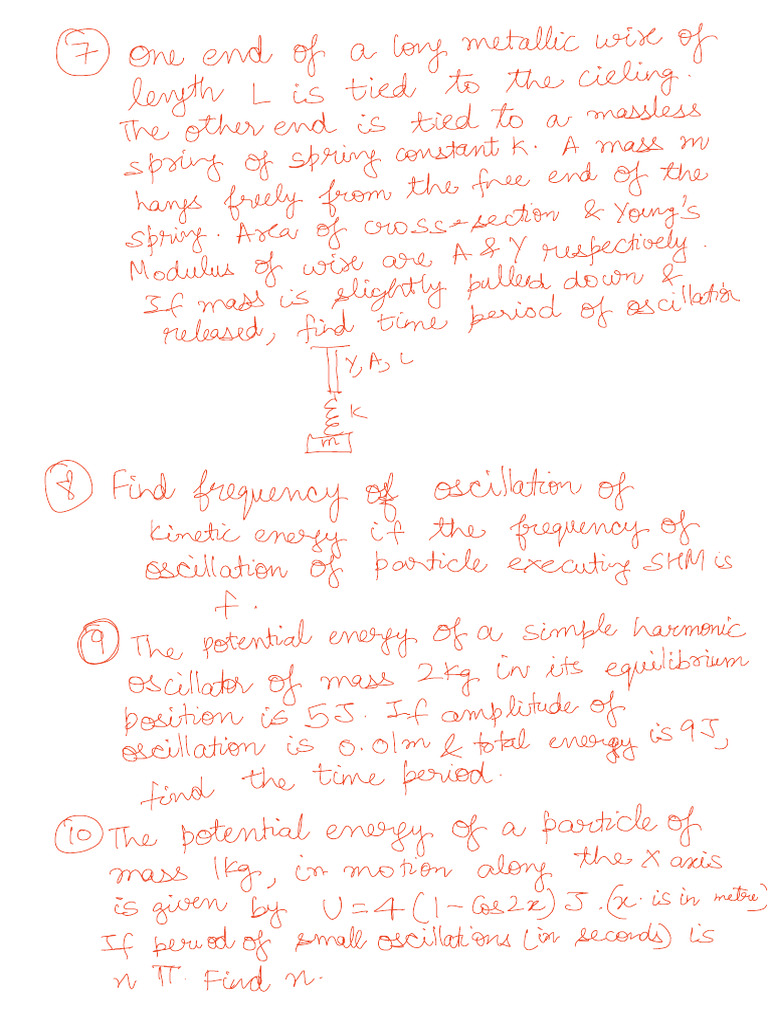 7 One end of a long metallic wire of
length L is tied to the cieling.
The other end is tied to a massless
spring of spring constant K. A mass m
hangs freely from the free end of the
spring. Area of cross-section & Young's
Modulus of wire are A & Y respectively.
If mass is slightly pulled down &
released, find time period of oscillation
Y, A, L
K
m
8 Find frequency of oscillation of
kinetic energy if the frequency of
oscillation of particle executing SHM is
f.
9 The potential energy of a simple harmonic
oscillator of mass 2kg in its equilibrium
position is 5J. If amplitude of
oscillation is 0.01m & total energy is 9J,
find the time period.
10 The potential energy of a particle of
mass 1kg, in motion along the X axis
is given by U=4(1-Cos2x) J. (x is in metre)
If period of small oscillations (in seconds) is
n π. Find n.